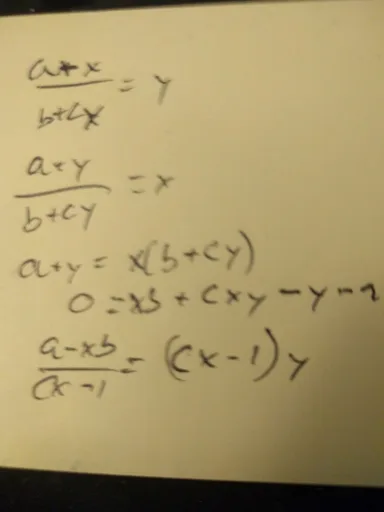 a+x
― = y
b+cx
a+y
― = x
b+cy
a+y = x(b+cy)
0 = xb + cxy - y - a
a-xb
― = (cx-1)y
cx-1